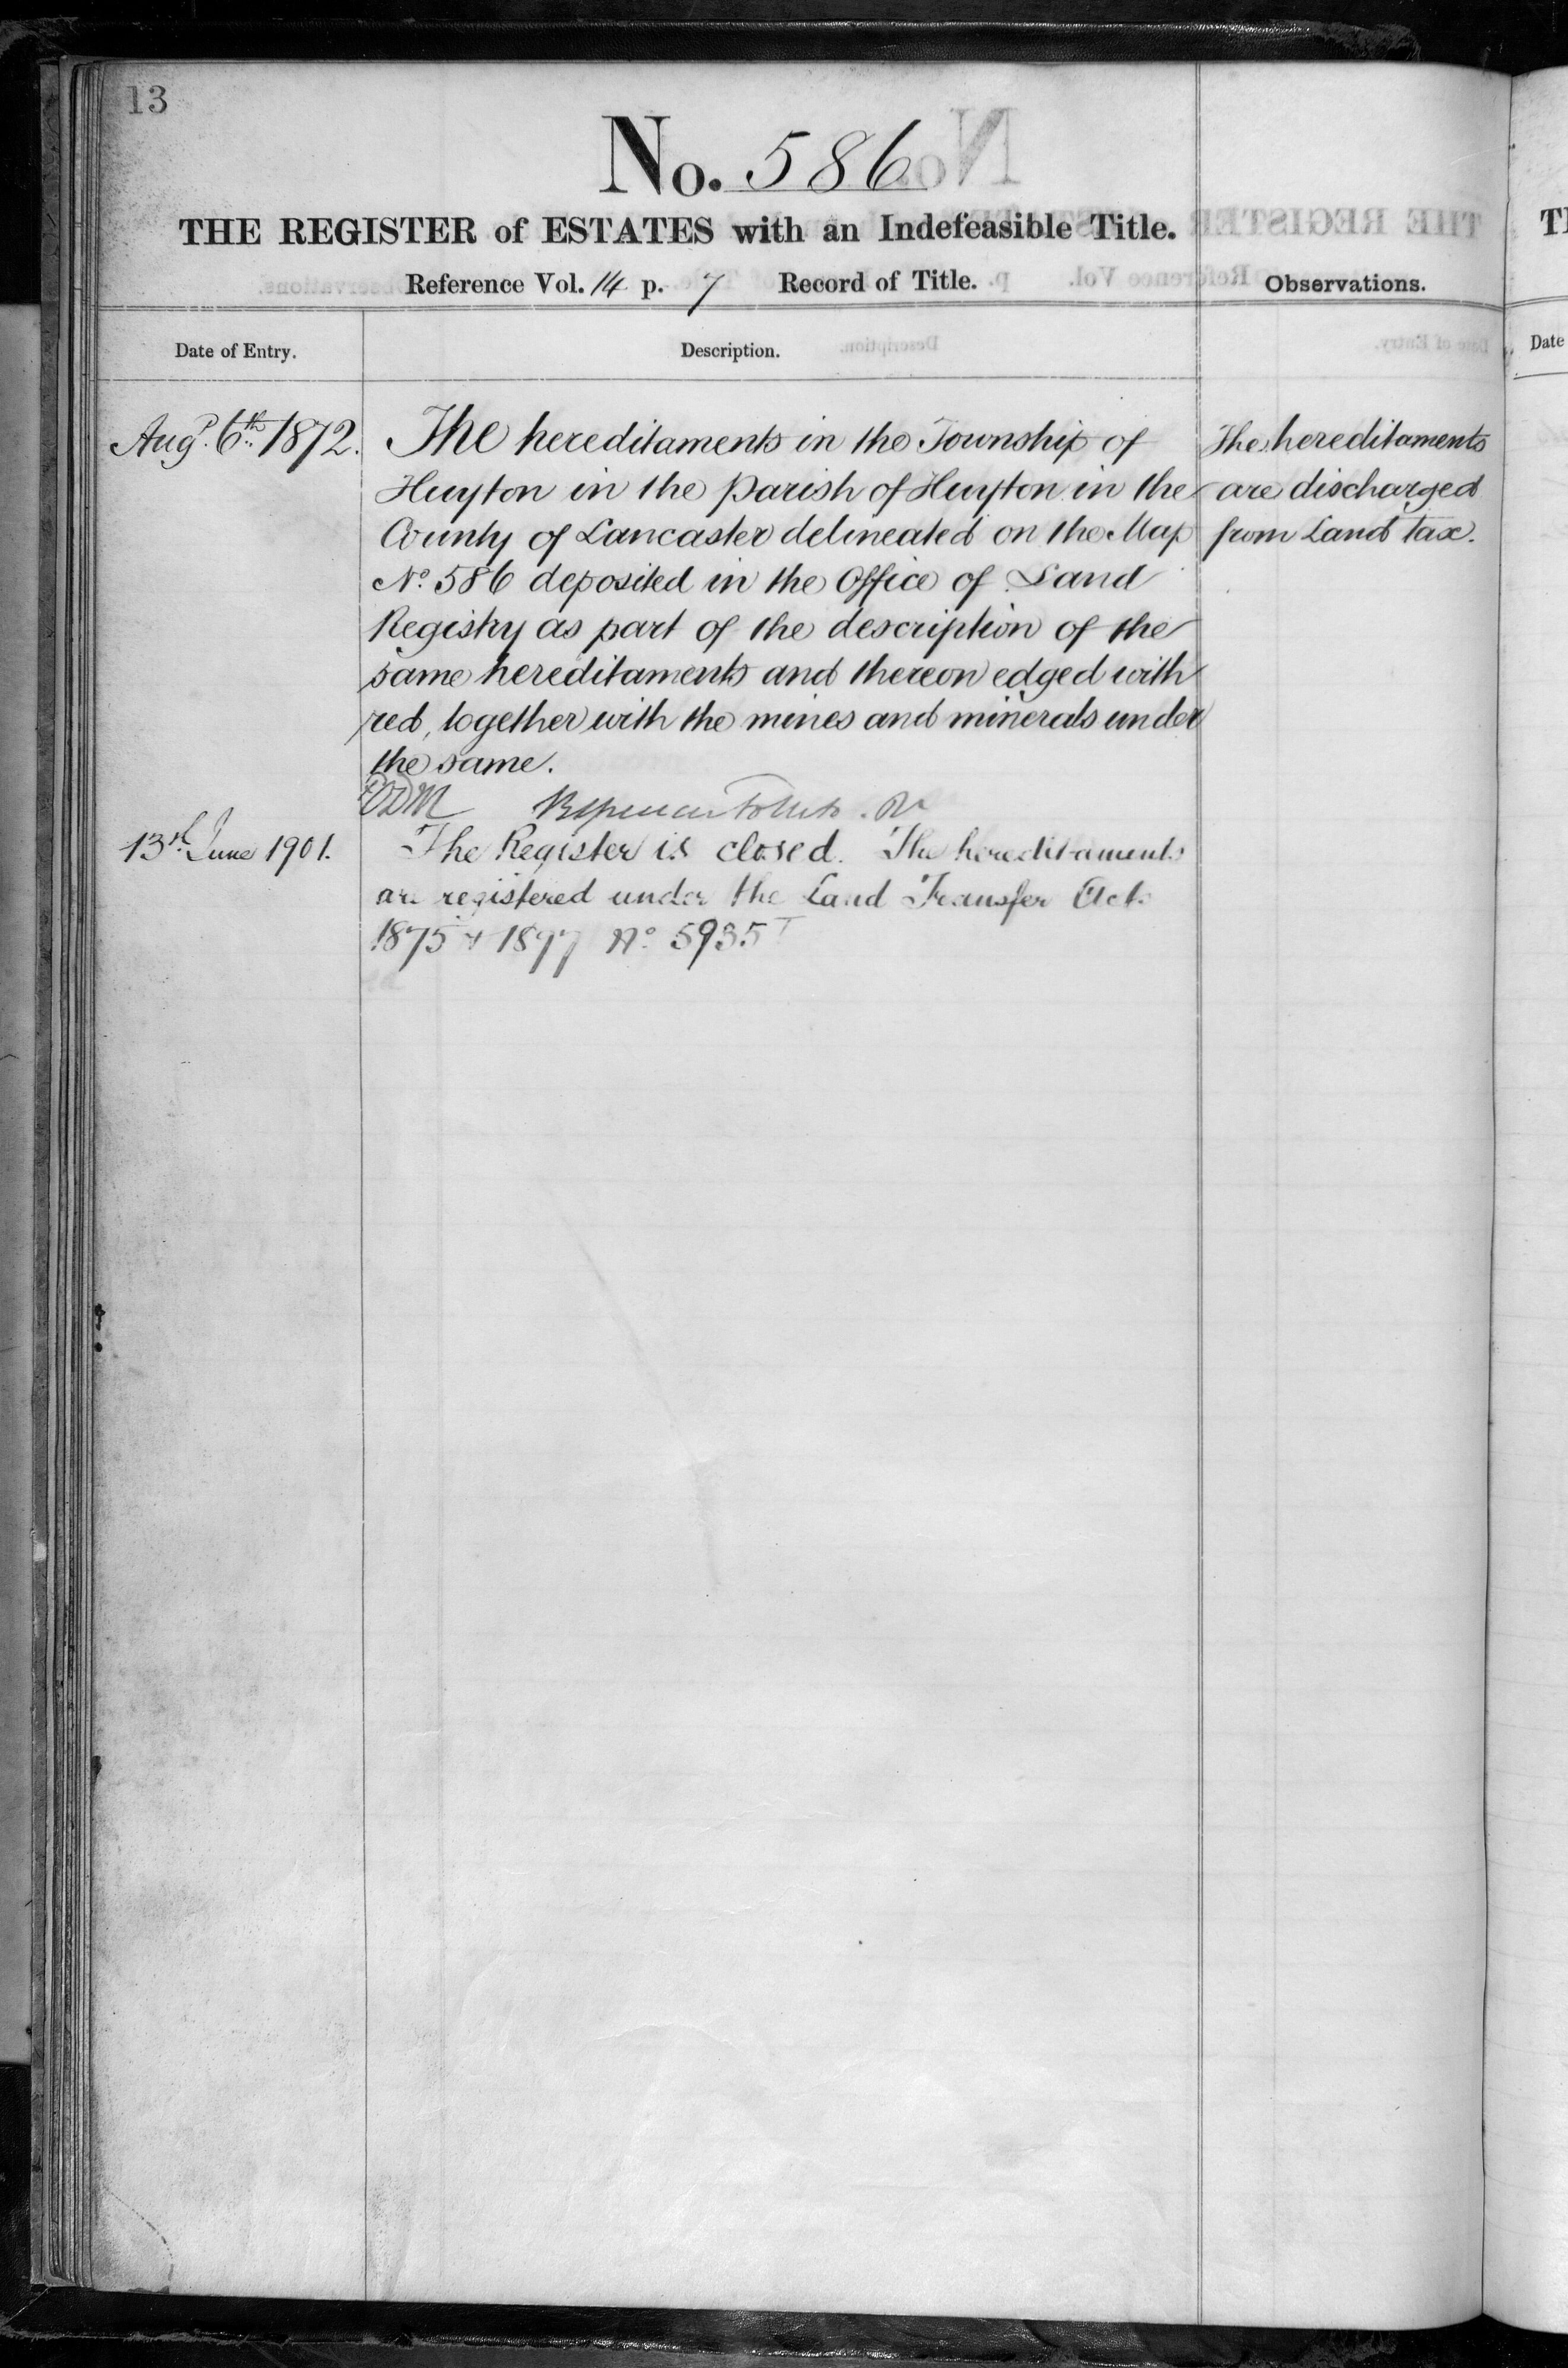 13
No. 586
THE REGISTER of ESTATES with an Indefeasible Title.
Reference Vol. 14 p. 7 Record of Title.
Observations.
Date of Entry.
Description.
Augt. 6th 1872.
The hereditaments in the Township of
Huyton in the Parish of Huyton in the
County of Lancaster delineated on the Map
No. 586 deposited in the Office of Land
Registry as part of the description of the
same hereditaments and thereon edged with
red, together with the mines and minerals under
the same.
The hereditaments
are discharged
from Land tax.
13th June 1901.
The Register is closed. The hereditaments
are registered under the Land Transfer Acts
1875 & 1897 No. 5935
Date